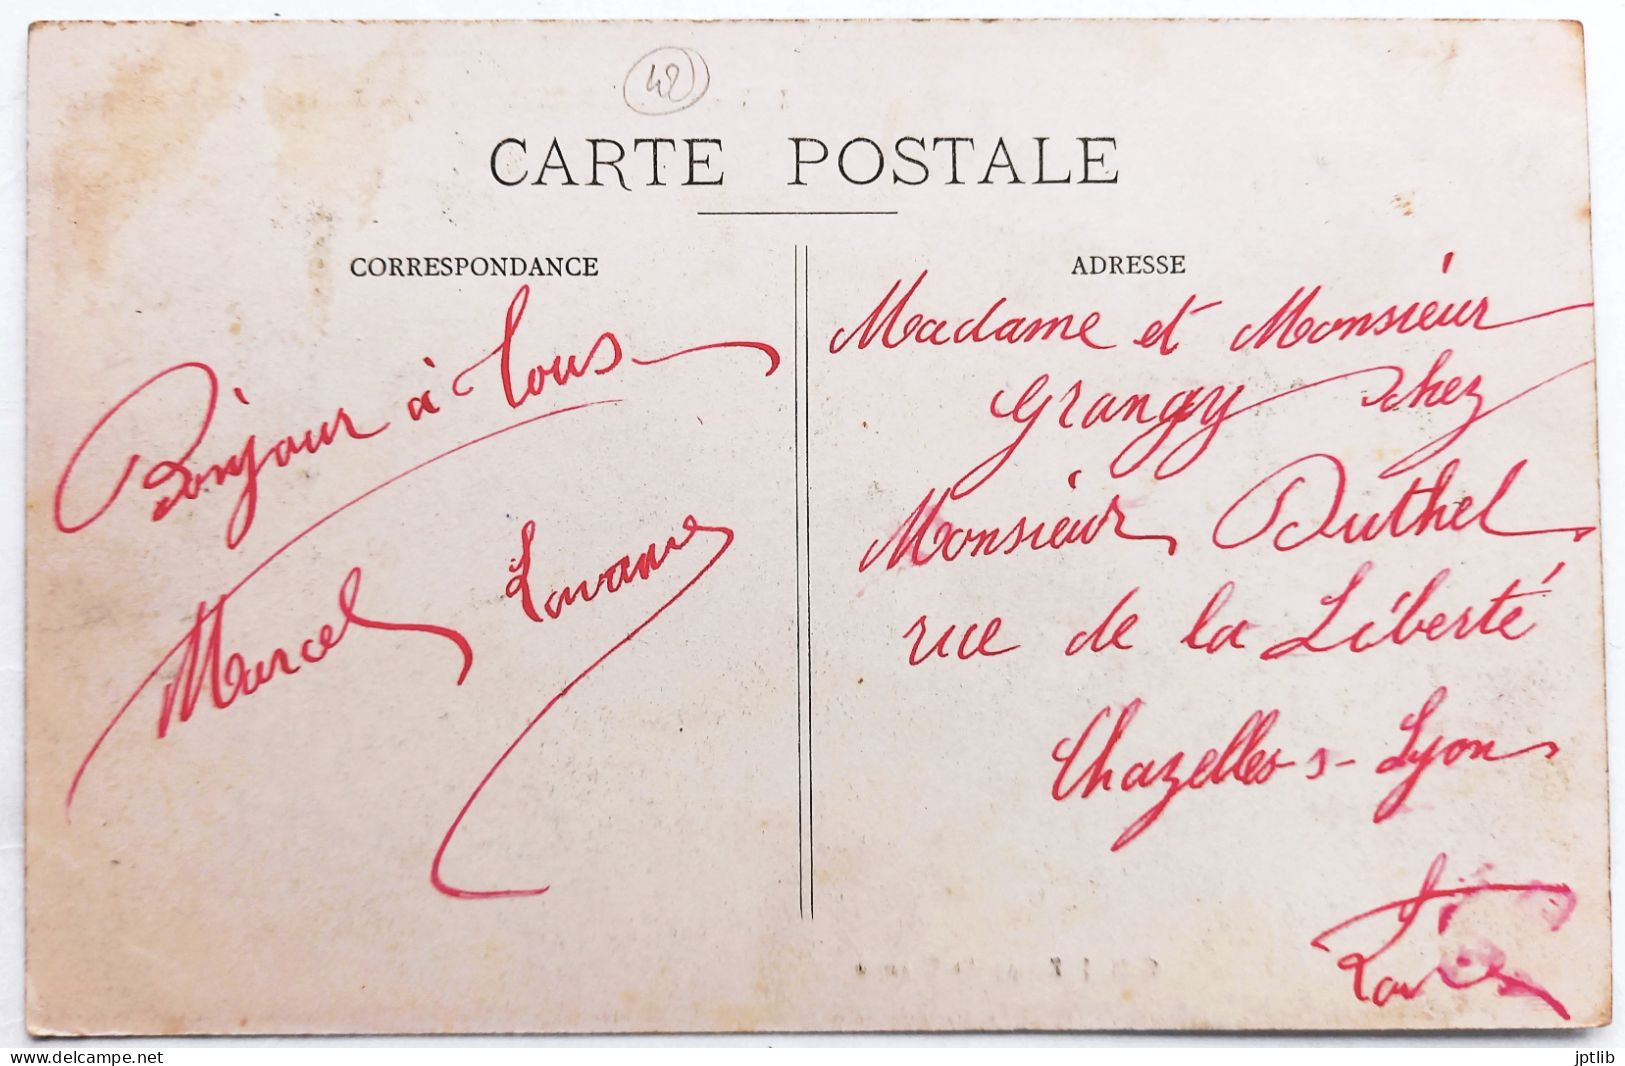 42
CARTE POSTALE
CORRESPONDANCE
Bonjour à tous
Marcel
ADRESSE
Madame et Monsieur
Grangy chez
Monsieur Duthel
rue de la Liberté
Chazelles-s-Lyon
jptlib